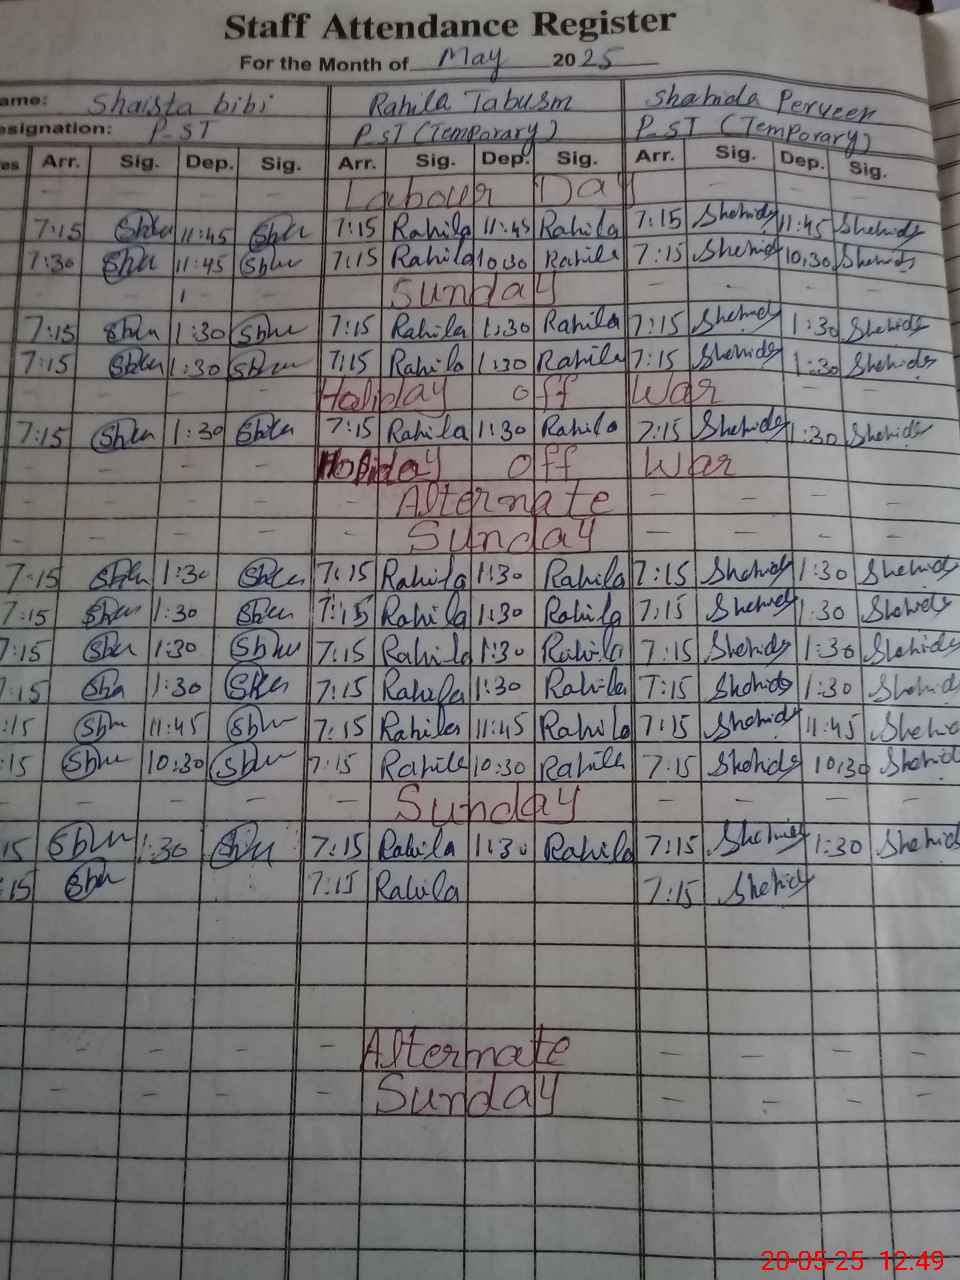 Staff Attendance Register
For the Month of May 2025
ame: Shaista bibi Rahila Tabusm Shahida Perveen
esignation: P_ST P_ST (Temporary) P_ST (Temporary)
es Arr. Sig. Dep. Sig. Arr. Sig. Dep. Sig. Arr. Sig. Dep. Sig.
— — — Labour Day — —
7:15 Shu 11:45 Shu 7:15 Rahila 11:45 Rahila 7:15 Shehids 11:45 Shehids
7:30 Shu 11:45 Shu 7:15 Rahila 10:30 Rahila 7:15 Shehids 10:30 Shehids
— — — — Sunday — — — —
7:15 Shu 1:30 Shu 7:15 Rahila 1:30 Rahila 7:15 Shehids 1:30 Shehids
7:15 Shu 1:30 Shu 7:15 Rahila 1:30 Rahila 7:15 Shehids 1:30 Shehids
— — — — Holiday off War — —
7:15 Shu 1:30 Shu 7:15 Rahila 1:30 Rahila 7:15 Shehids 1:30 Shehids
— — — — Holiday off War — —
— — — — — Alternate — — — —
— — — — — Sunday — — — —
7:15 Shu 1:30 Shu 7:15 Rahila 1:30 Rahila 7:15 Shehids 1:30 Shehids
7:15 Shu 1:30 Shu 7:15 Rahila 1:30 Rahila 7:15 Shehids 1:30 Shehids
7:15 Shu 1:30 Shu 7:15 Rahila 1:30 Rahila 7:15 Shehids 1:30 Shehids
7:15 Shu 1:30 Shu 7:15 Rahila 1:30 Rahila 7:15 Shehids 1:30 Shehids
:15 Shu 11:45 Shu 7:15 Rahila 11:45 Rahila 7:15 Shehids 11:45 Shehid
:15 Shu 10:30 Shu 7:15 Rahila 10:30 Rahila 7:15 Shehids 10:30 Shehid
— — — — — Sunday — — — —
15 Shu 1:30 Shu 7:15 Rahila 1:30 Rahila 7:15 Shehids 1:30 Shehid
:15 Shu 7:15 Rahila 7:15 Shehids
— — — — — Alternate — — — —
— — — — — Sunday — — — —
20-05-25 12:49